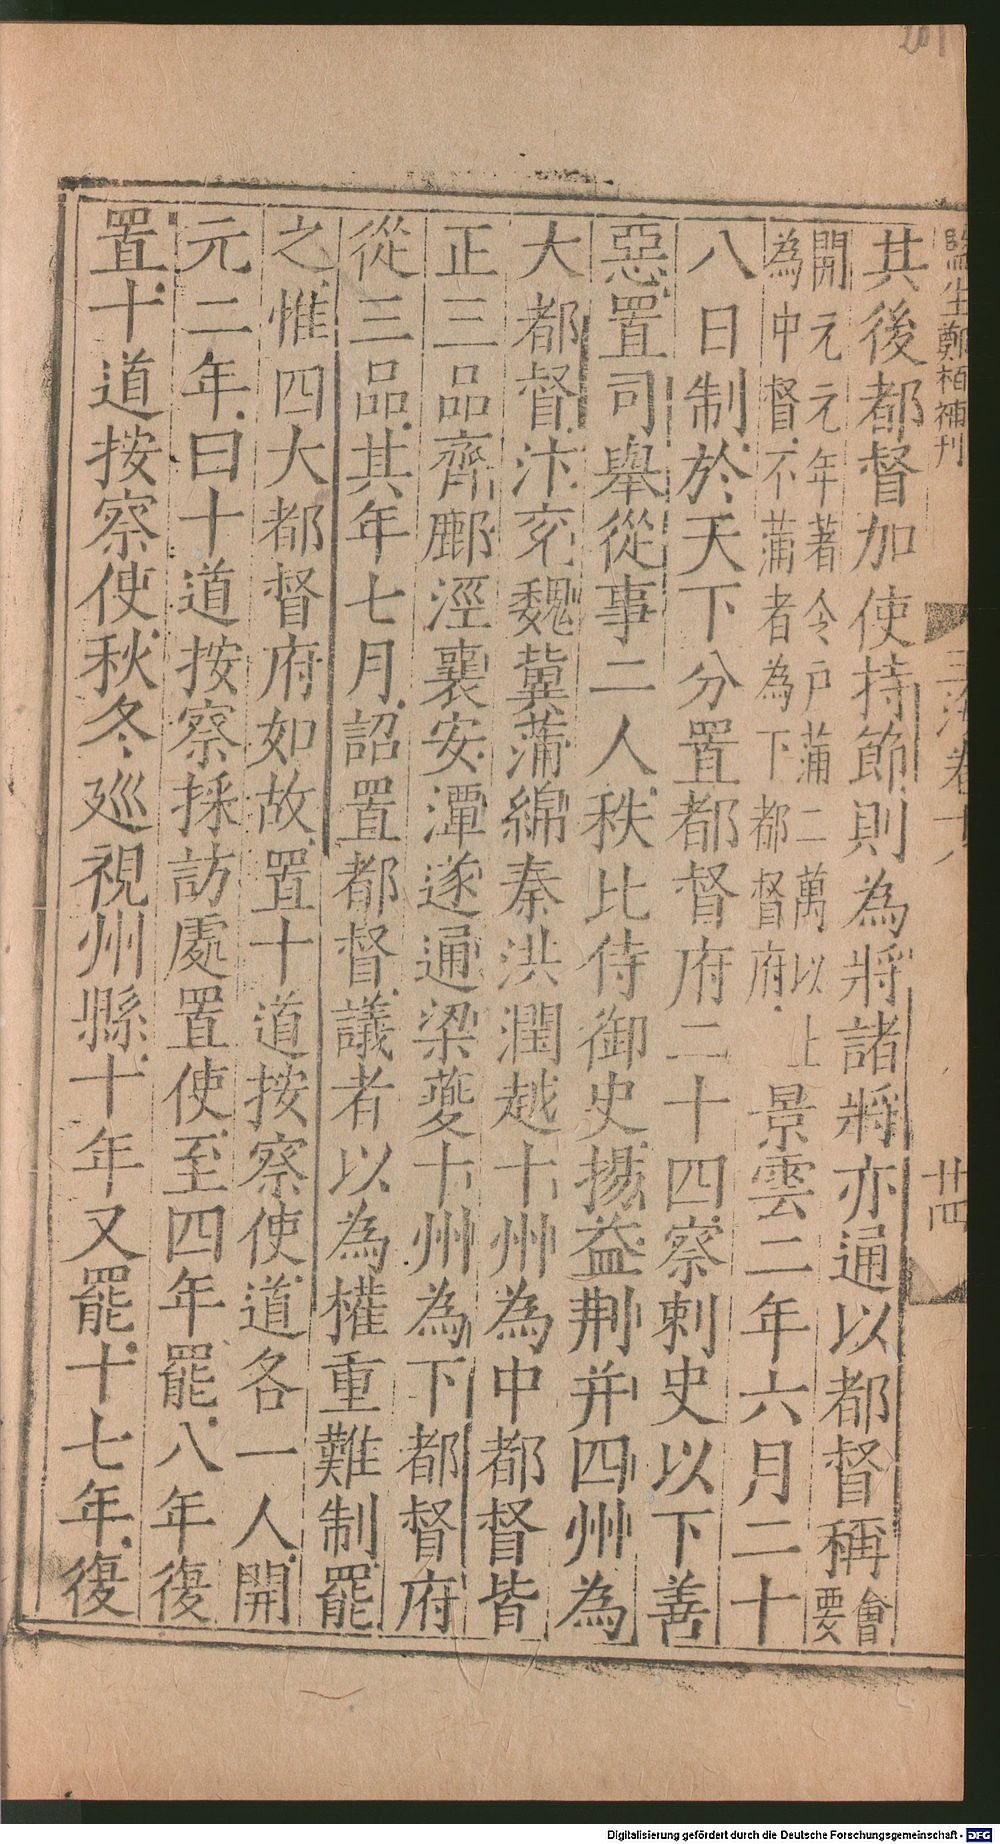 監生鄭栢補刊
玉海卷十八
廿四
其後都督加使持節則為將諸將亦通以都督稱會
開元元年著令戶蒲二萬以上
為中督不蒲者為下都督府
要
景雲二年六月二十
八日制於天下分置都督府二十四察刺史以下善
惡置司舉從事二人秩比侍御史揚益荆并四州為
大都督汴兖魏冀蒲綿秦洪潤越十州為中都督皆
正三品齊鄜涇襄安潭遂通梁夔十州為下都督府
從三品其年七月詔置都督議者以為權重難制罷
之惟四大都督府如故置十道按察使道各一人開
元二年曰十道按察採訪處置使至四年罷八年復
置十道按察使秋冬巡視州縣十年又罷十七年復
Digitalisierung gefördert durch die Deutsche Forschungsgemeinschaft - DFG